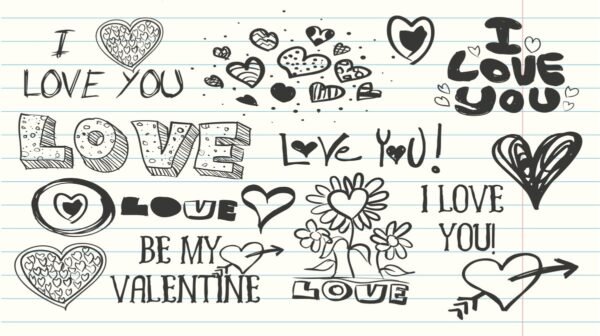 I
LOVE YOU
I
LOVE
YOU
LOVE
LOVE YOU!
LOVE
I LOVE
YOU!
BE MY
VALENTINE
LOVE